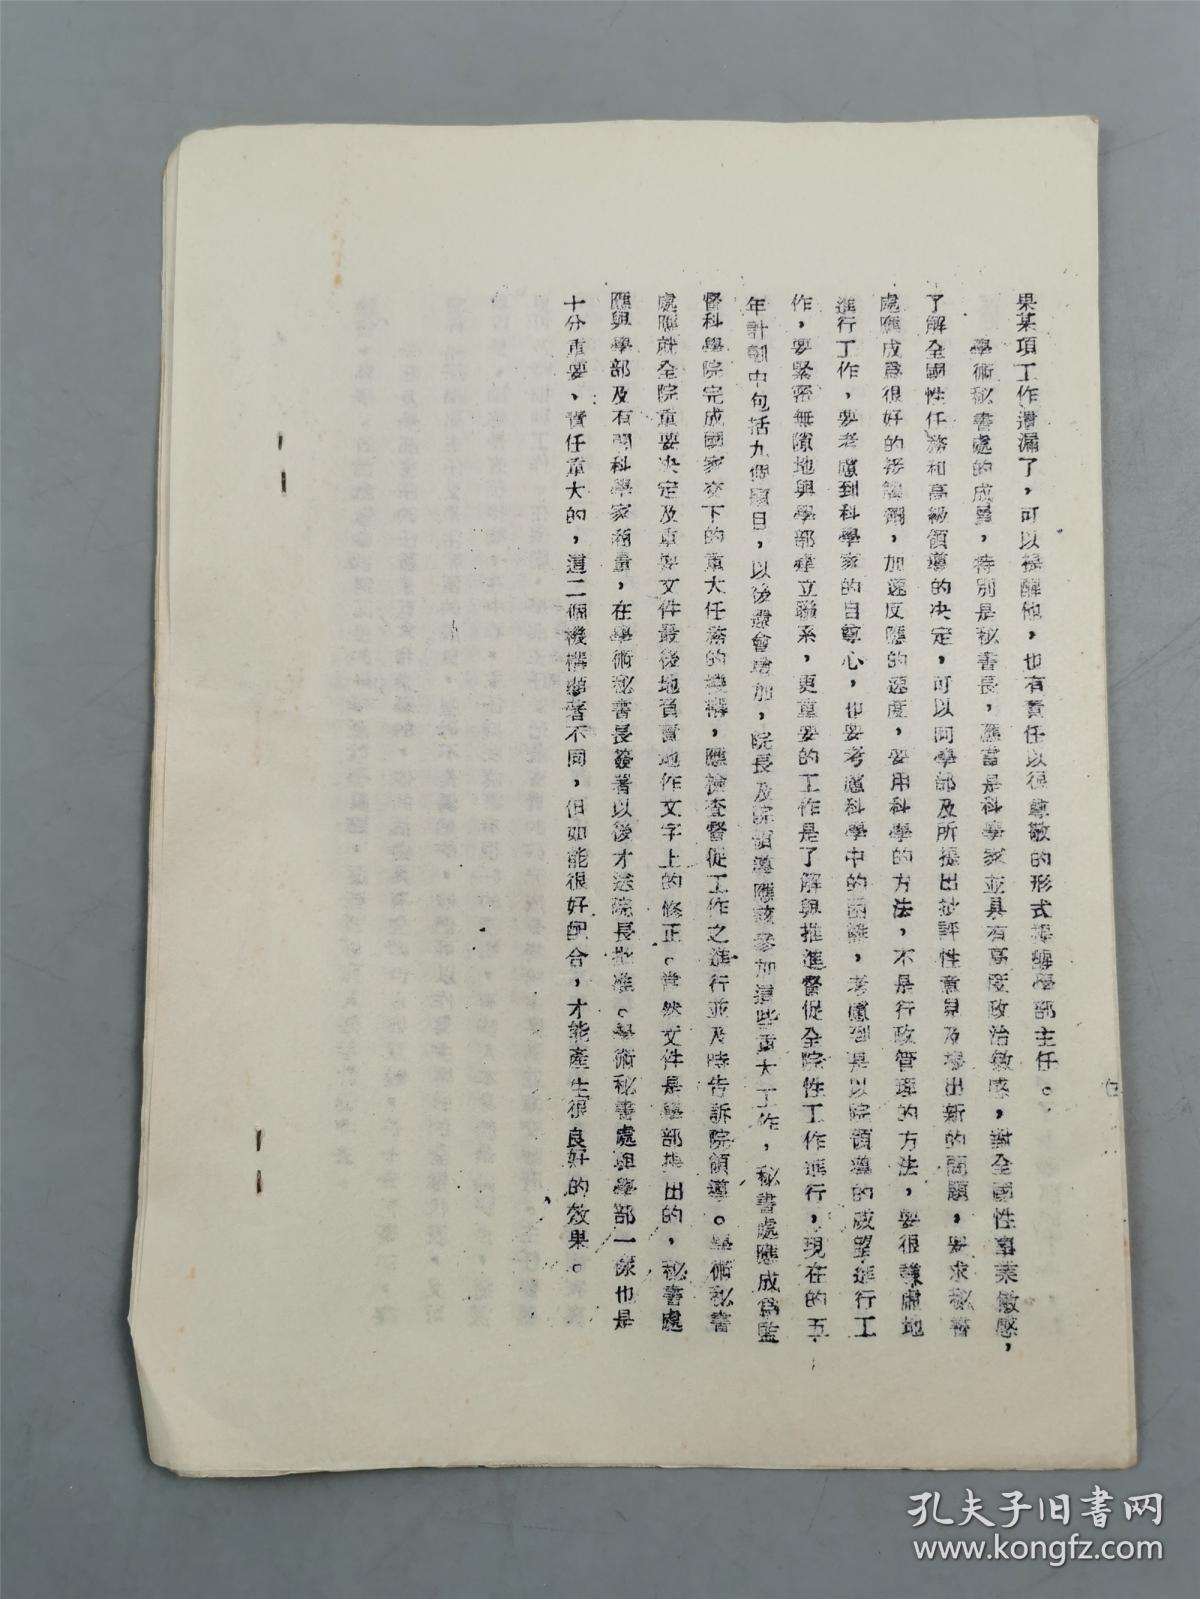 果某項工作遺漏了，可以提醒他，也有責任以很尊敬的形式提醒學部主任。
學術秘書處的成員，特別是秘書長，應當是科學家並具有高度政治敏感，對全國性事業敏感，
了解全國性任務和高級領導的决定，可以向學部及所提出批評性意見及提出新的問題，要求秘書
處應成爲很好的接觸劑，加速反應的速度，要用科學的方法，不是行政管理的方法，要很謙虛地
進行工作，要考慮到科學家的自尊心，也要考慮科學中的困難，考慮到是以院領導的威望進行工
作，要緊密無隙地與學部建立聯系，更重要的工作是了解與推進督促全院性工作進行，現在的五
年計劃中包括九個題目，以後還會增加，院長及院領導應該參加這些重大工作，秘書處應成爲監
督科學院完成國家交下的重大任務的機構，應檢查督促工作之進行並及時告訴院領導。學術秘書
處應就全院重要决定及重要文件最後地負責地作文字上的修正。當然文件是學部提出的，秘書處
應與學部及有關科學家商量，在學術秘書長簽署以後才送院長批准。學術秘書處與學部一樣也是
十分重要，責任重大的，這二個機構雖著不同，但如能很好配合，才能產生很良好的效果。
孔夫子旧書网
www.kongfz.com